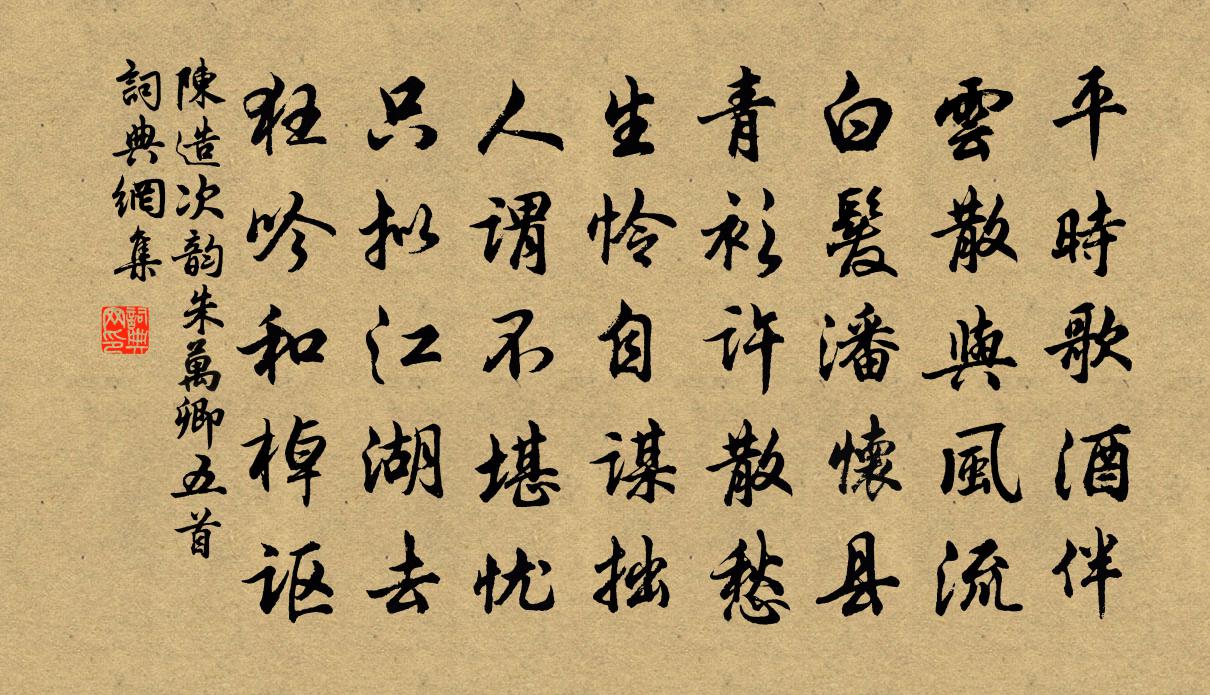 平時歌酒伴
雲散與風流
白髮潘懷县
青衫许散愁
生怜自谋拙
人谓不堪忧
只拟江湖去
狂吟和棹讴
陳造次韵朱萬卿五首
詞典網集
詞典网印